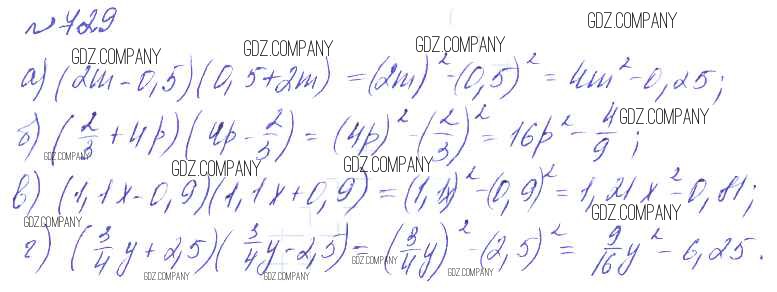 № 729
GDZ.COMPANY
GDZ.COMPANY GDZ.COMPANY GDZ.COMPANY
а) (2m - 0,5)(0,5 + 2m) = (2m)² - (0,5)² = 4m² - 0,25;
GDZ.COMPANY
б) (2/3 + 4p)(4p - 2/3) = (4p)² - (2/3)² = 16p² - 4/9;
GDZ.COMPANY GDZ.COMPANY GDZ.COMPANY
в) (1,1x - 0,9)(1,1x + 0,9) = (1,1x)² - (0,9)² = 1,21x² - 0,81;
GDZ.COMPANY GDZ.COMPANY
г) (3/4y + 2,5)(3/4y - 2,5) = (3/4y)² - (2,5)² = 9/16y² - 6,25.
GDZ.COMPANY GDZ.COMPANY GDZ.COMPANY GDZ.COMPANY